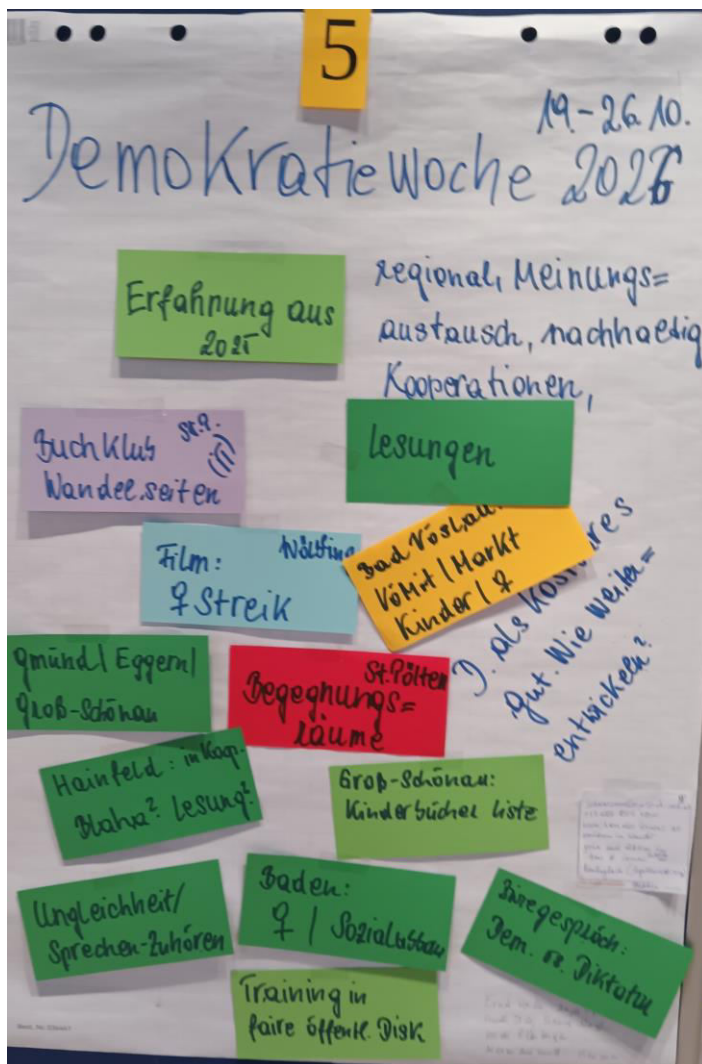 5
19.-26.10.
Demokratiewoche 2026
Erfahrung aus
2025
regional, Meinungs=
austausch, nachhaltig
Kooperationen,
Buchklub St.P.
Wandel.seiten
Lesungen
Film:
♀ Streik
Bad Vöslau
Markt
Kinder / ♀
D. als kostbares
Gut. Wie weiter=
entwickeln?
Gmünd / Eggern /
Groß-Schönau
St. Pölten
Begegnungs=
räume
Hainfeld: in Koop.
Blaha? Lesung?
Groß-Schönau:
Kinderbücher Liste
Ungleichheit/
Sprechen-Zuhören
Baden:
♀ / Sozialabbau
Dem. vs. Diktatur
Training in
faire öffentl. Disk